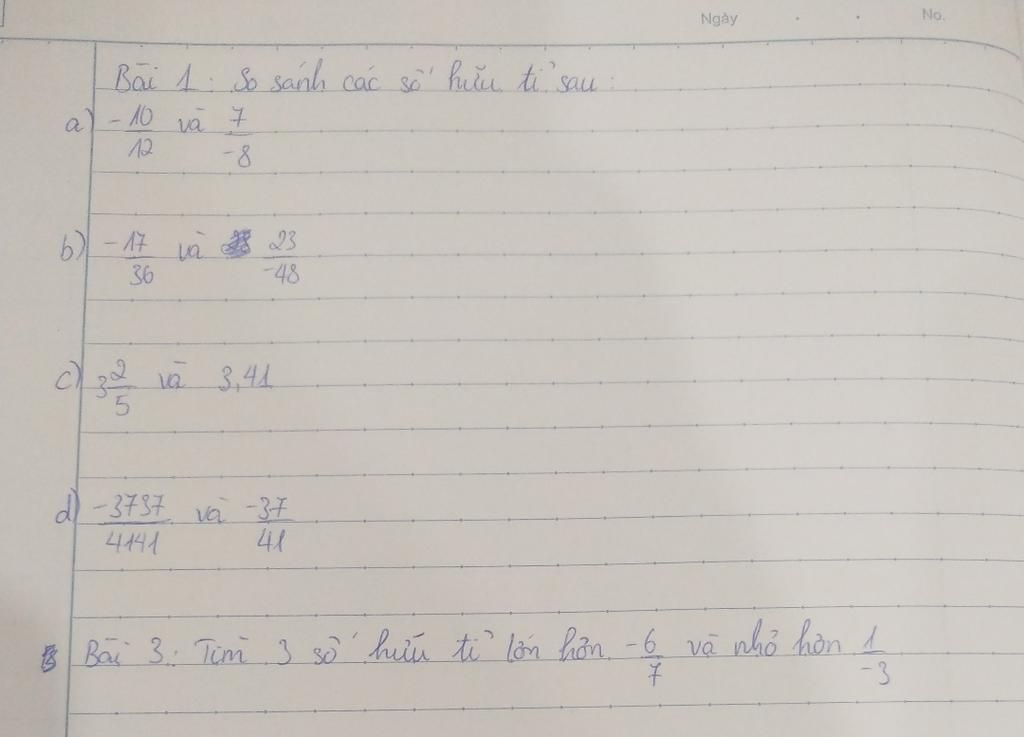 Ngày . . No.
Bài 1: So sánh các số hữu tỉ sau:
a) -10/12 và 7/-8
b) -17/36 và 23/-48
c) 3 2/5 và 3,41
d) -3737/4141 và -37/41
Bài 3: Tìm 3 số hữu tỉ lớn hơn -6/7 và nhỏ hơn 1/-3